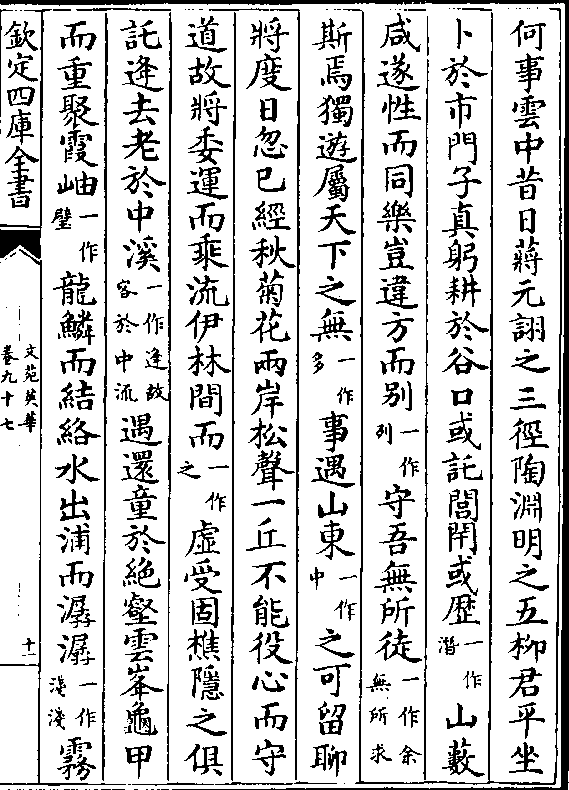 何事雲中昔日蔣元詡之三徑陶淵明之五柳君平坐
卜於市門子真躬耕於谷口或託閭閈或歴一作潛山藪
咸遂性而同樂豈違方而别一作列守吾無所徒一作余無所求
斯焉獨遊屬天下之無一作多事遇山東一作中之可留聊
將度日忽已經秋菊花兩岸松聲一丘不能役心而守
道故將委運而乘流伊林間而一作之虛受固樵隱之俱
託逄去老於中溪一作逄故客於中流遇還童於絶壑雲峯龜甲
而重聚霞岫一作壁龍鱗而結絡水出浦而潺潺一作淺淺霧
欽定四庫全書
文苑英華
卷九十七
十一